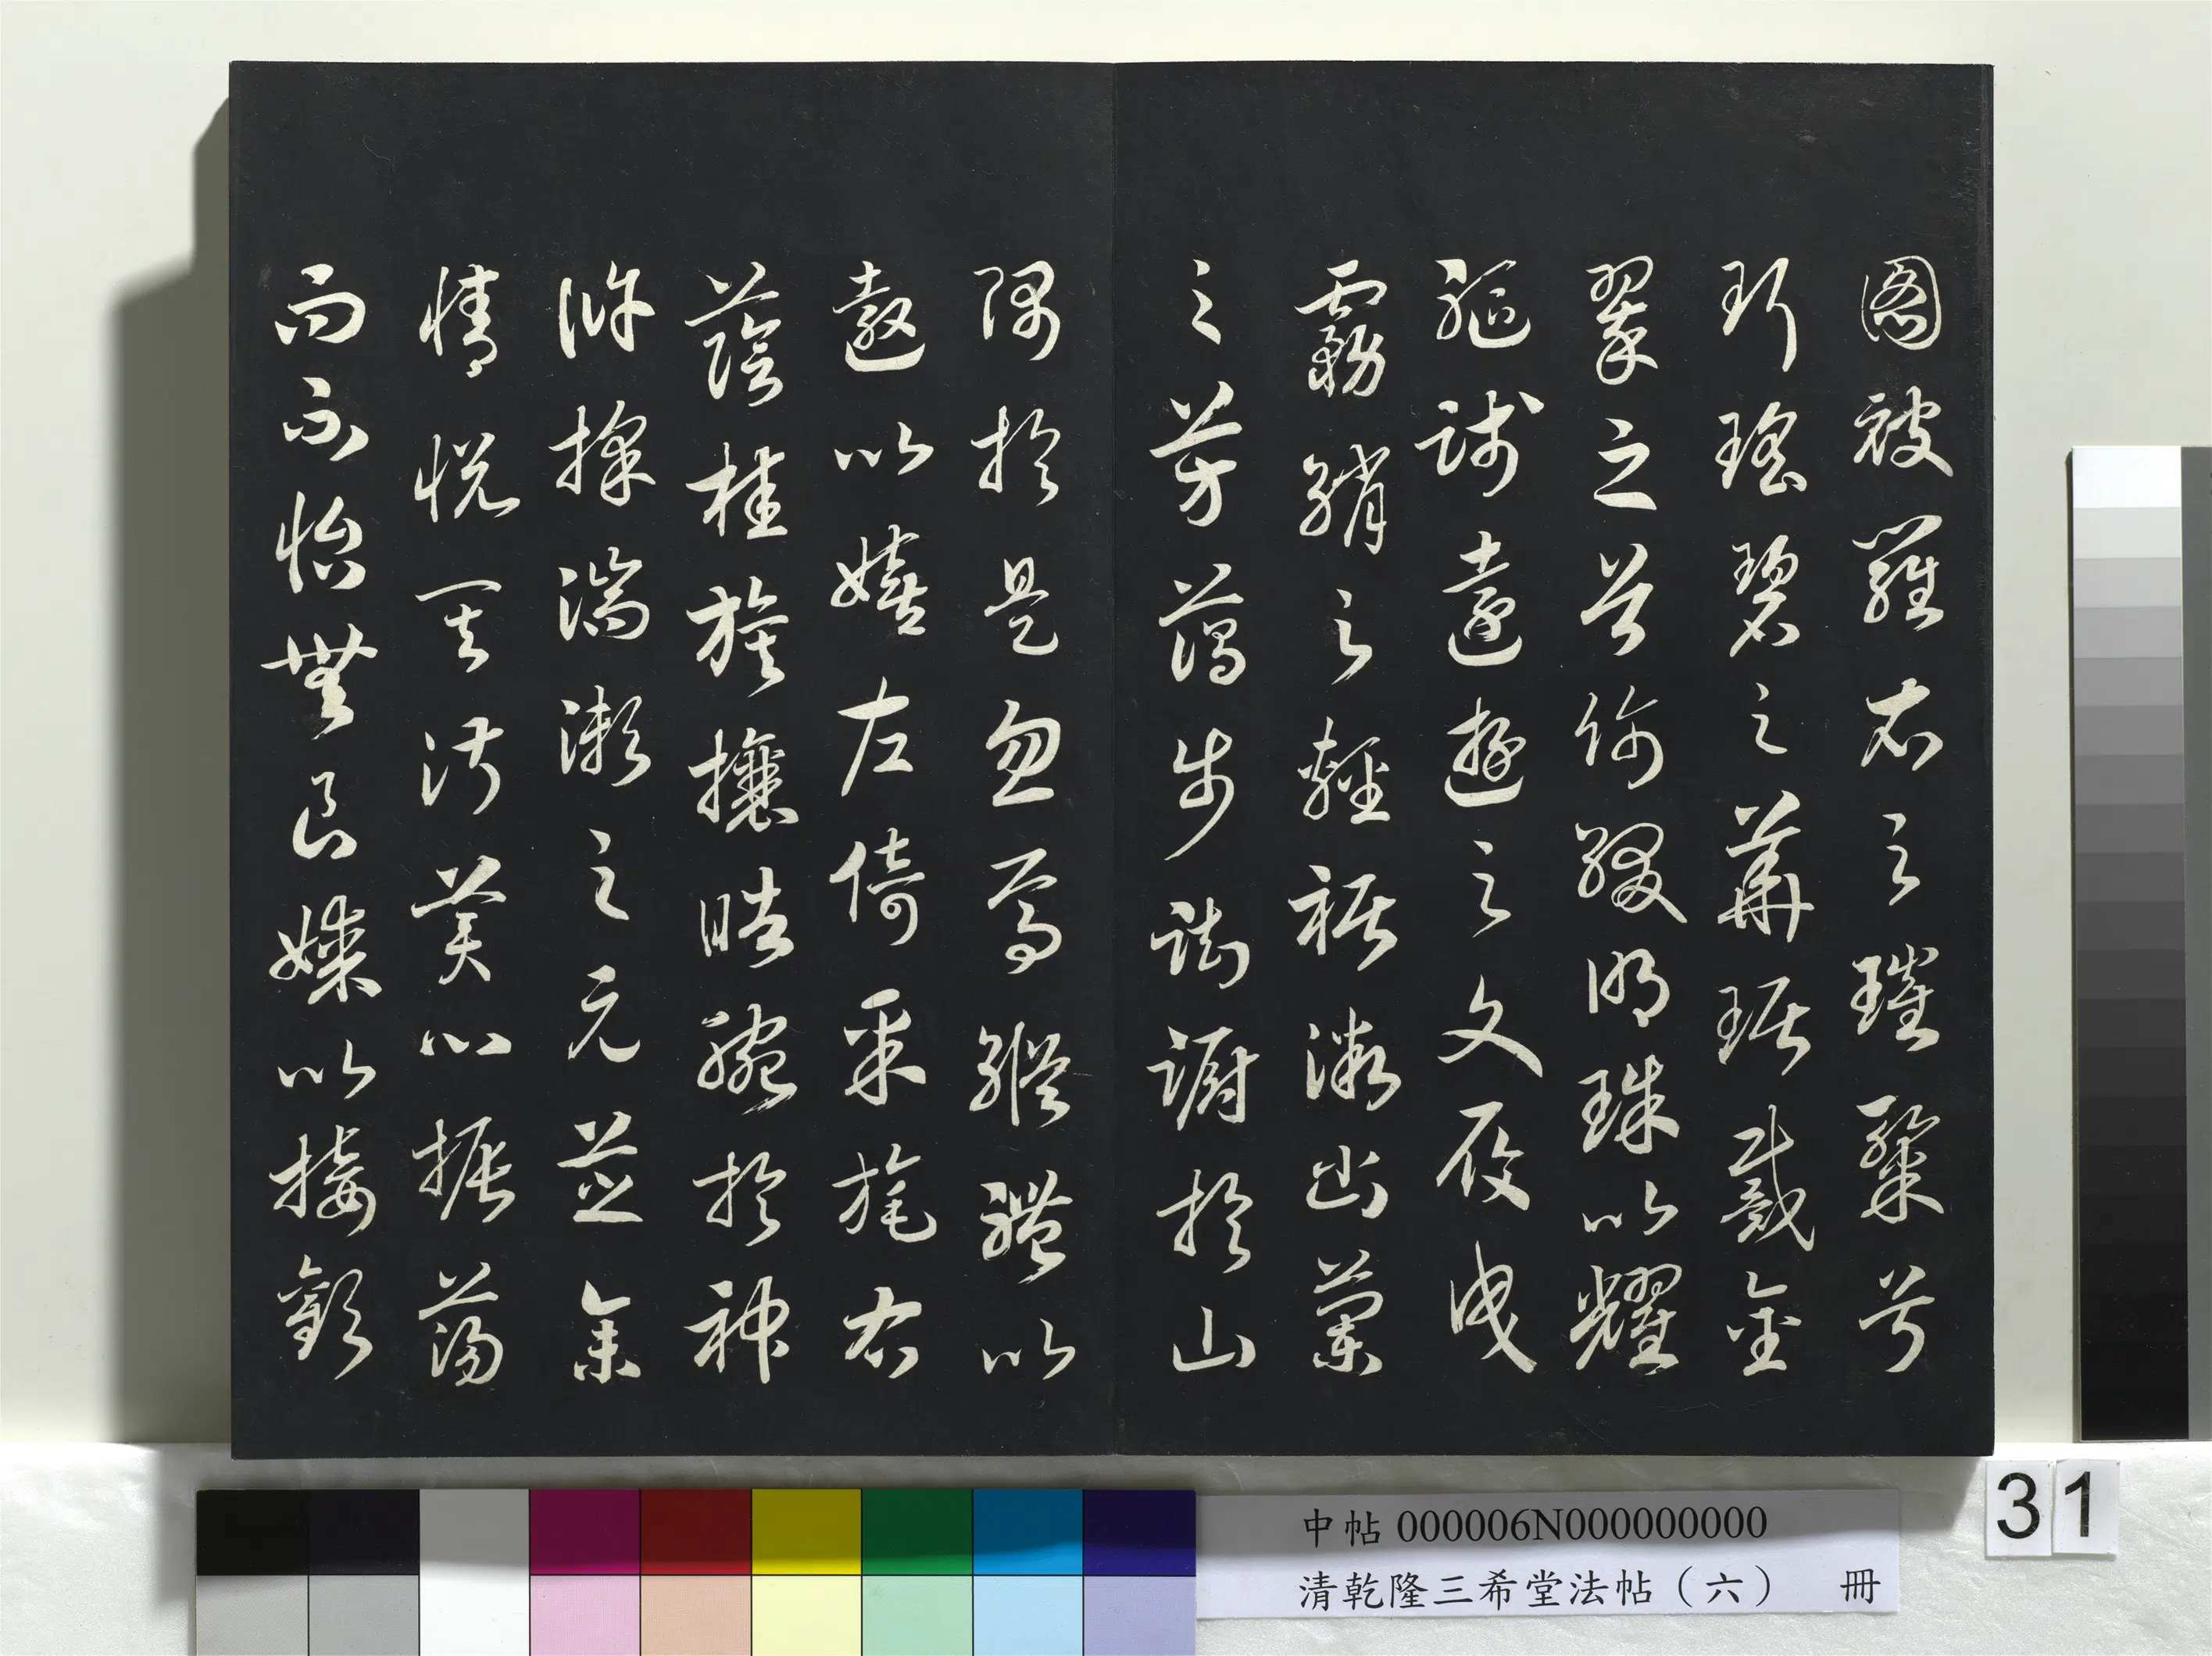 圖被羅衣之璀粲兮
珥瑤碧之華琚戴金
翠之首飾綴明珠以耀
軀踐遠遊之文履曳
霧綃之輕裾微幽蘭
之芳藹步踟躕於山
隅於是忽焉縱體以
遨以嬉左倚采旄右
蔭桂旗攘晧腕於神
滸採湍瀨之元芝余
情悅其淑美心振蕩
而不怡無良媒以接歡
中帖 000006N000000000
清乾隆三希堂法帖（六） 冊
31